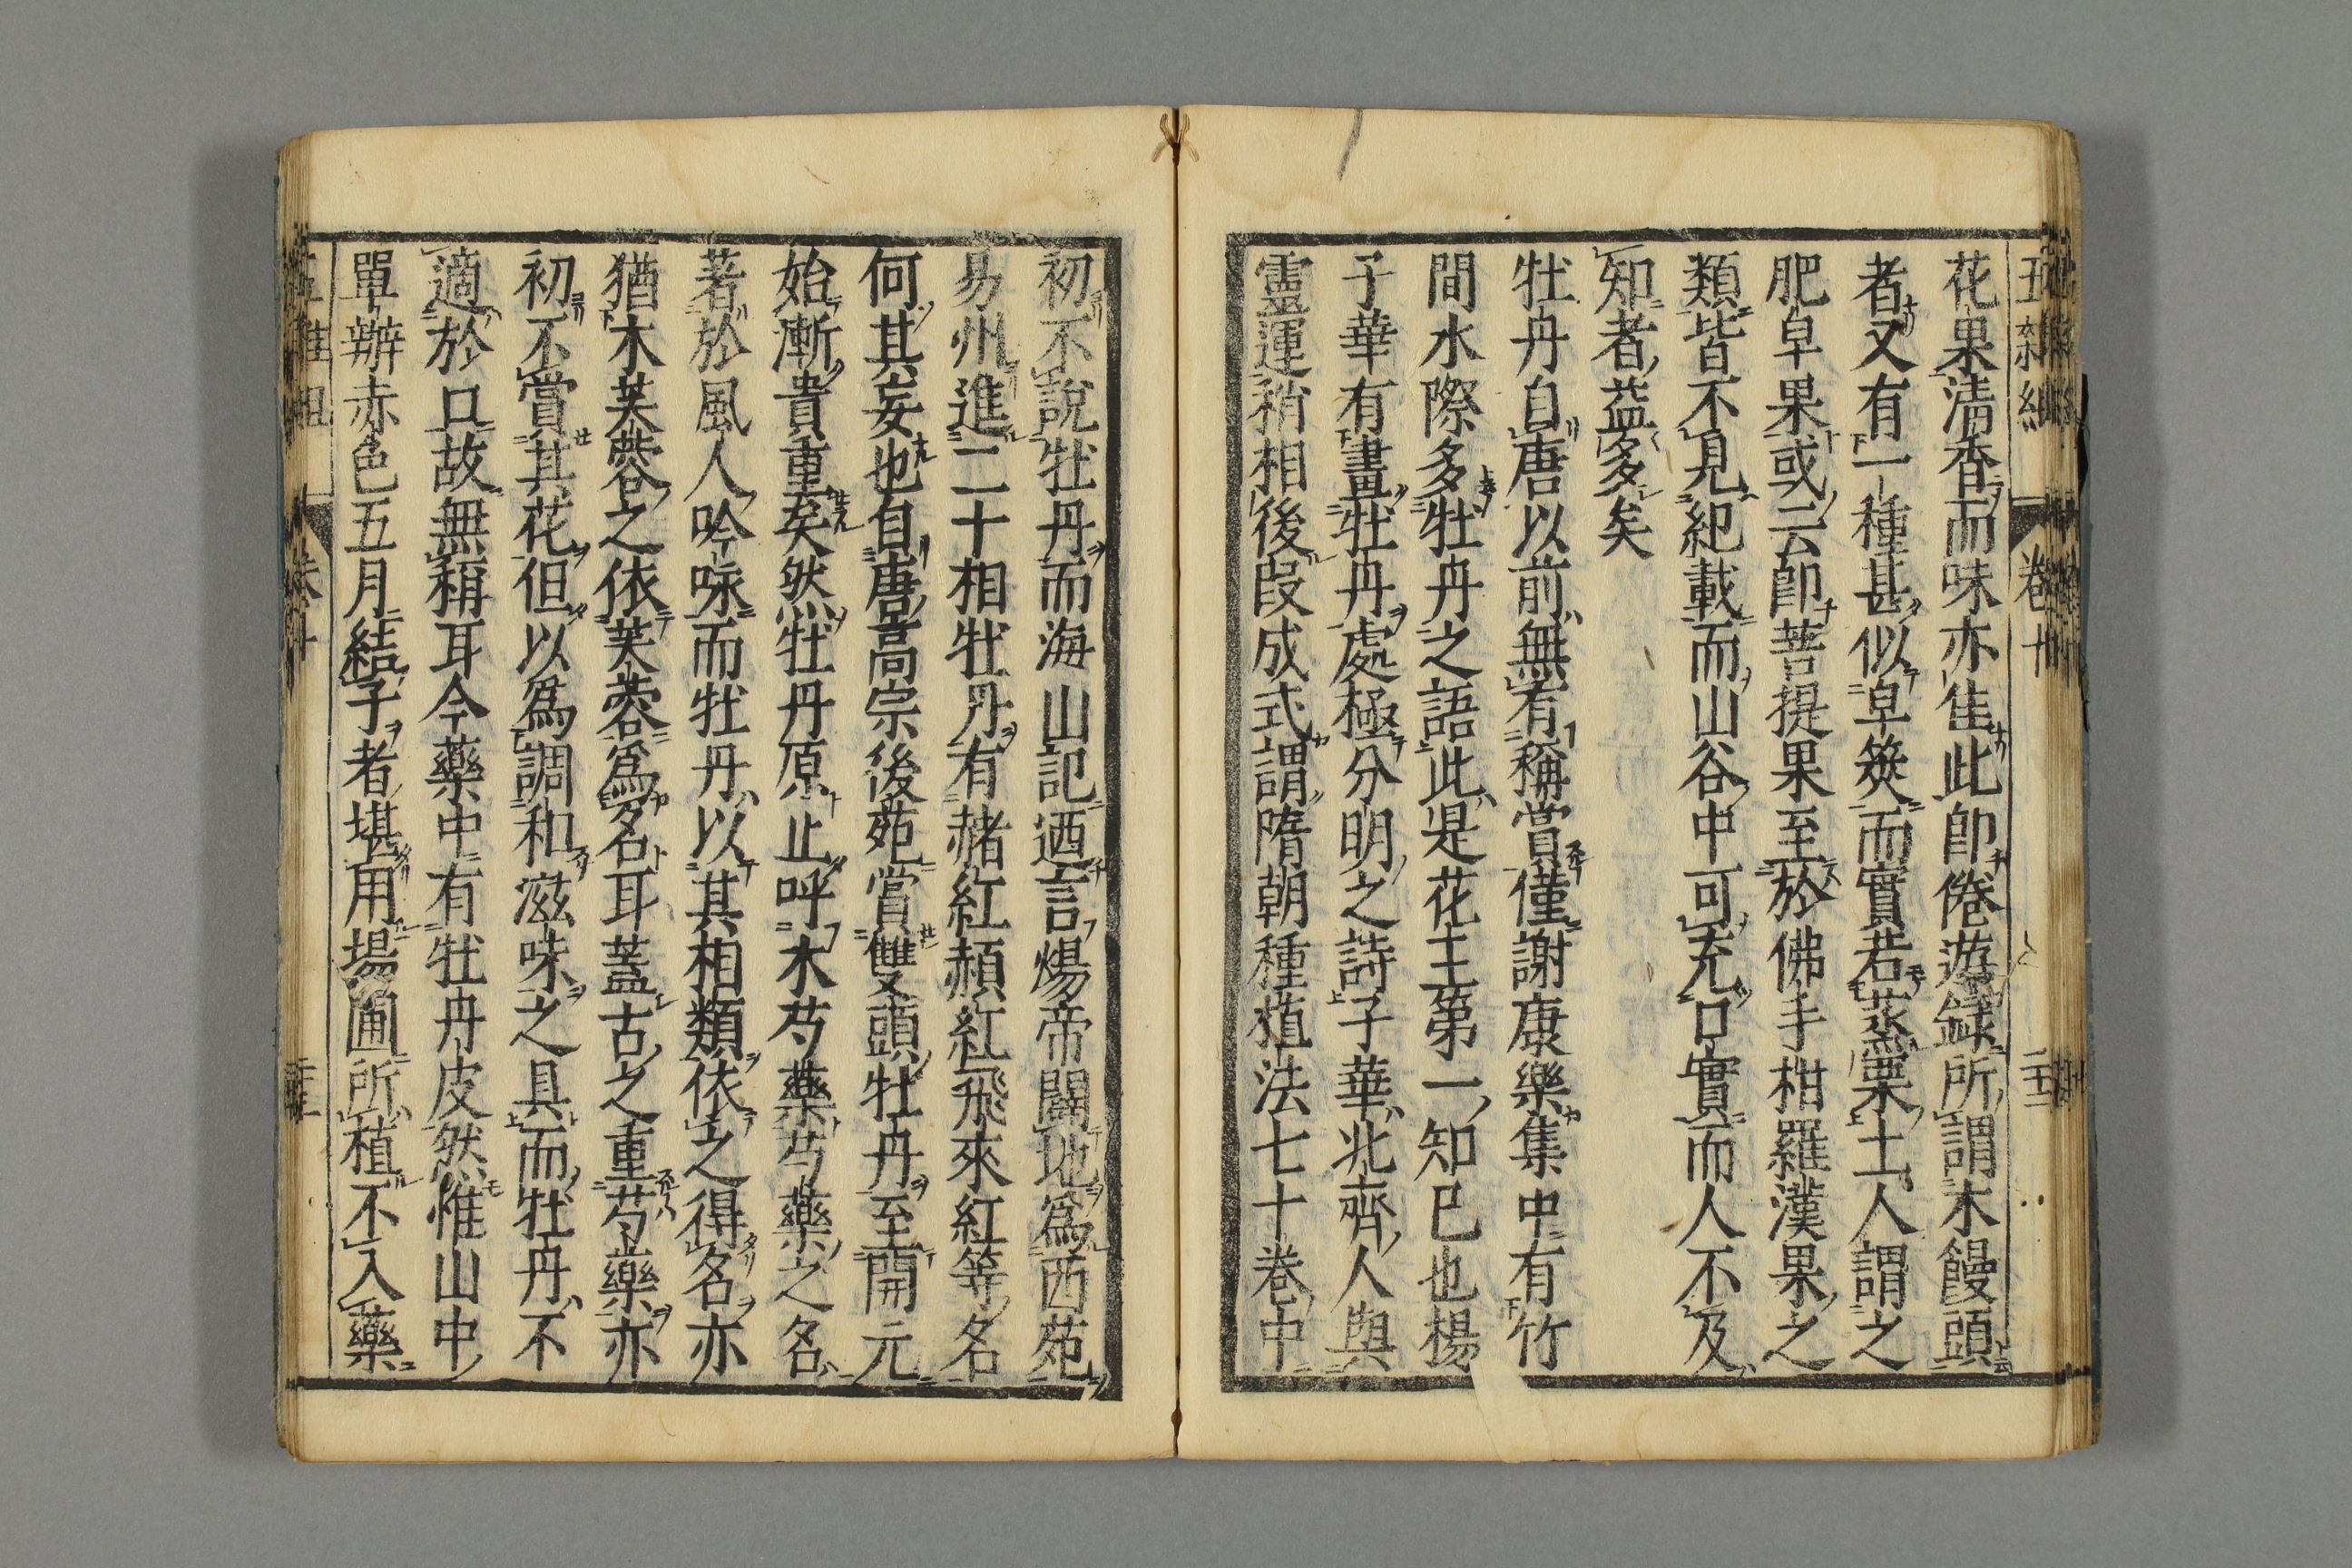 五雜組 卷十 二十三
花果清香而味亦佳此卽倦遊錄所謂木饅頭
者又有一種甚似皁莢而實若蒸栗土人謂之
肥皁果或云卽菩提果至於佛手柑羅漢果之
類皆不見紀載而山谷中可充口實而人不及
知者益多矣
牡丹自唐以前無有稱賞僅謝康樂集中有竹
間水際多牡丹之語此是花王第一知已也楊
子華有畫牡丹處極分明之詩子華北齊人與
靈運稍相後段成式謂隋朝種植法七十卷中
初不說牡丹而海山記迺言煬帝闢地爲西苑
易州進二十相牡丹有赭紅赬紅飛來紅等名
何其妄也自唐高宗後苑賞雙頭牡丹至開元
始漸貴重矣然牡丹原止呼木芍藥芍藥之名
著於風人吟咏而牡丹以其相類依之得名亦
猶木芙蓉之依芙蓉爲名耳蓋古之重芍藥亦
初不賞其花但以爲調和滋味之具而牡丹不
適於口故無稱耳今藥中有牡丹皮然惟山中
單瓣赤色五月結子者堪用場圃所植不入藥